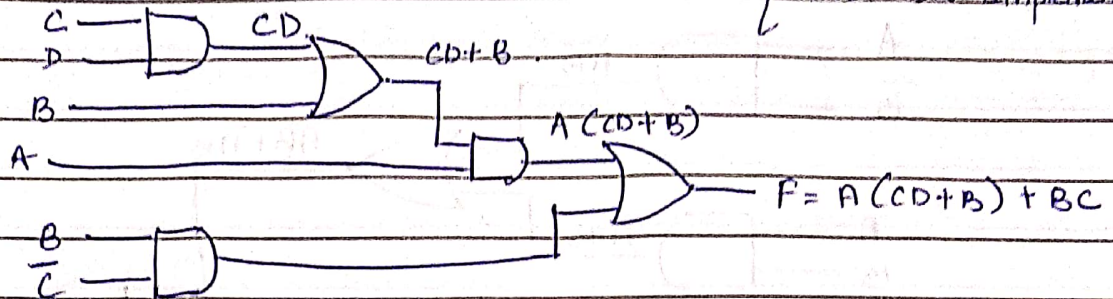 C
CD
D
CD+B.
B
A (CD+B)
A
F = A (CD+B) + BC
B
C̅